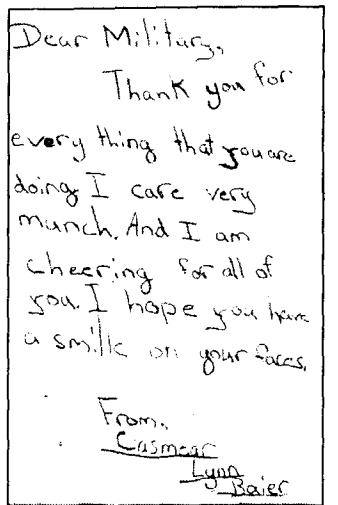 Dear Military,
Thank you for
every thing that you are
doing I care very
munch. And I am
cheering for all of
you. I hope you have
a smilk on your faces.
From,
Casmear
Lynn
Baier